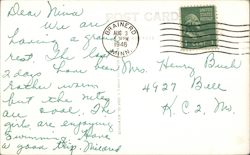 Dear Nina
We are
having a grand
rest. The last
2 days have been
rather warm
but the nites
are cool. The
girls are enjoying
swimming. Have
a good trip.
BRAINERD
AUG 3
PM
1946
MINN.
Mrs. Henry Buel
4927 Bell
K.C. 2 Mo.